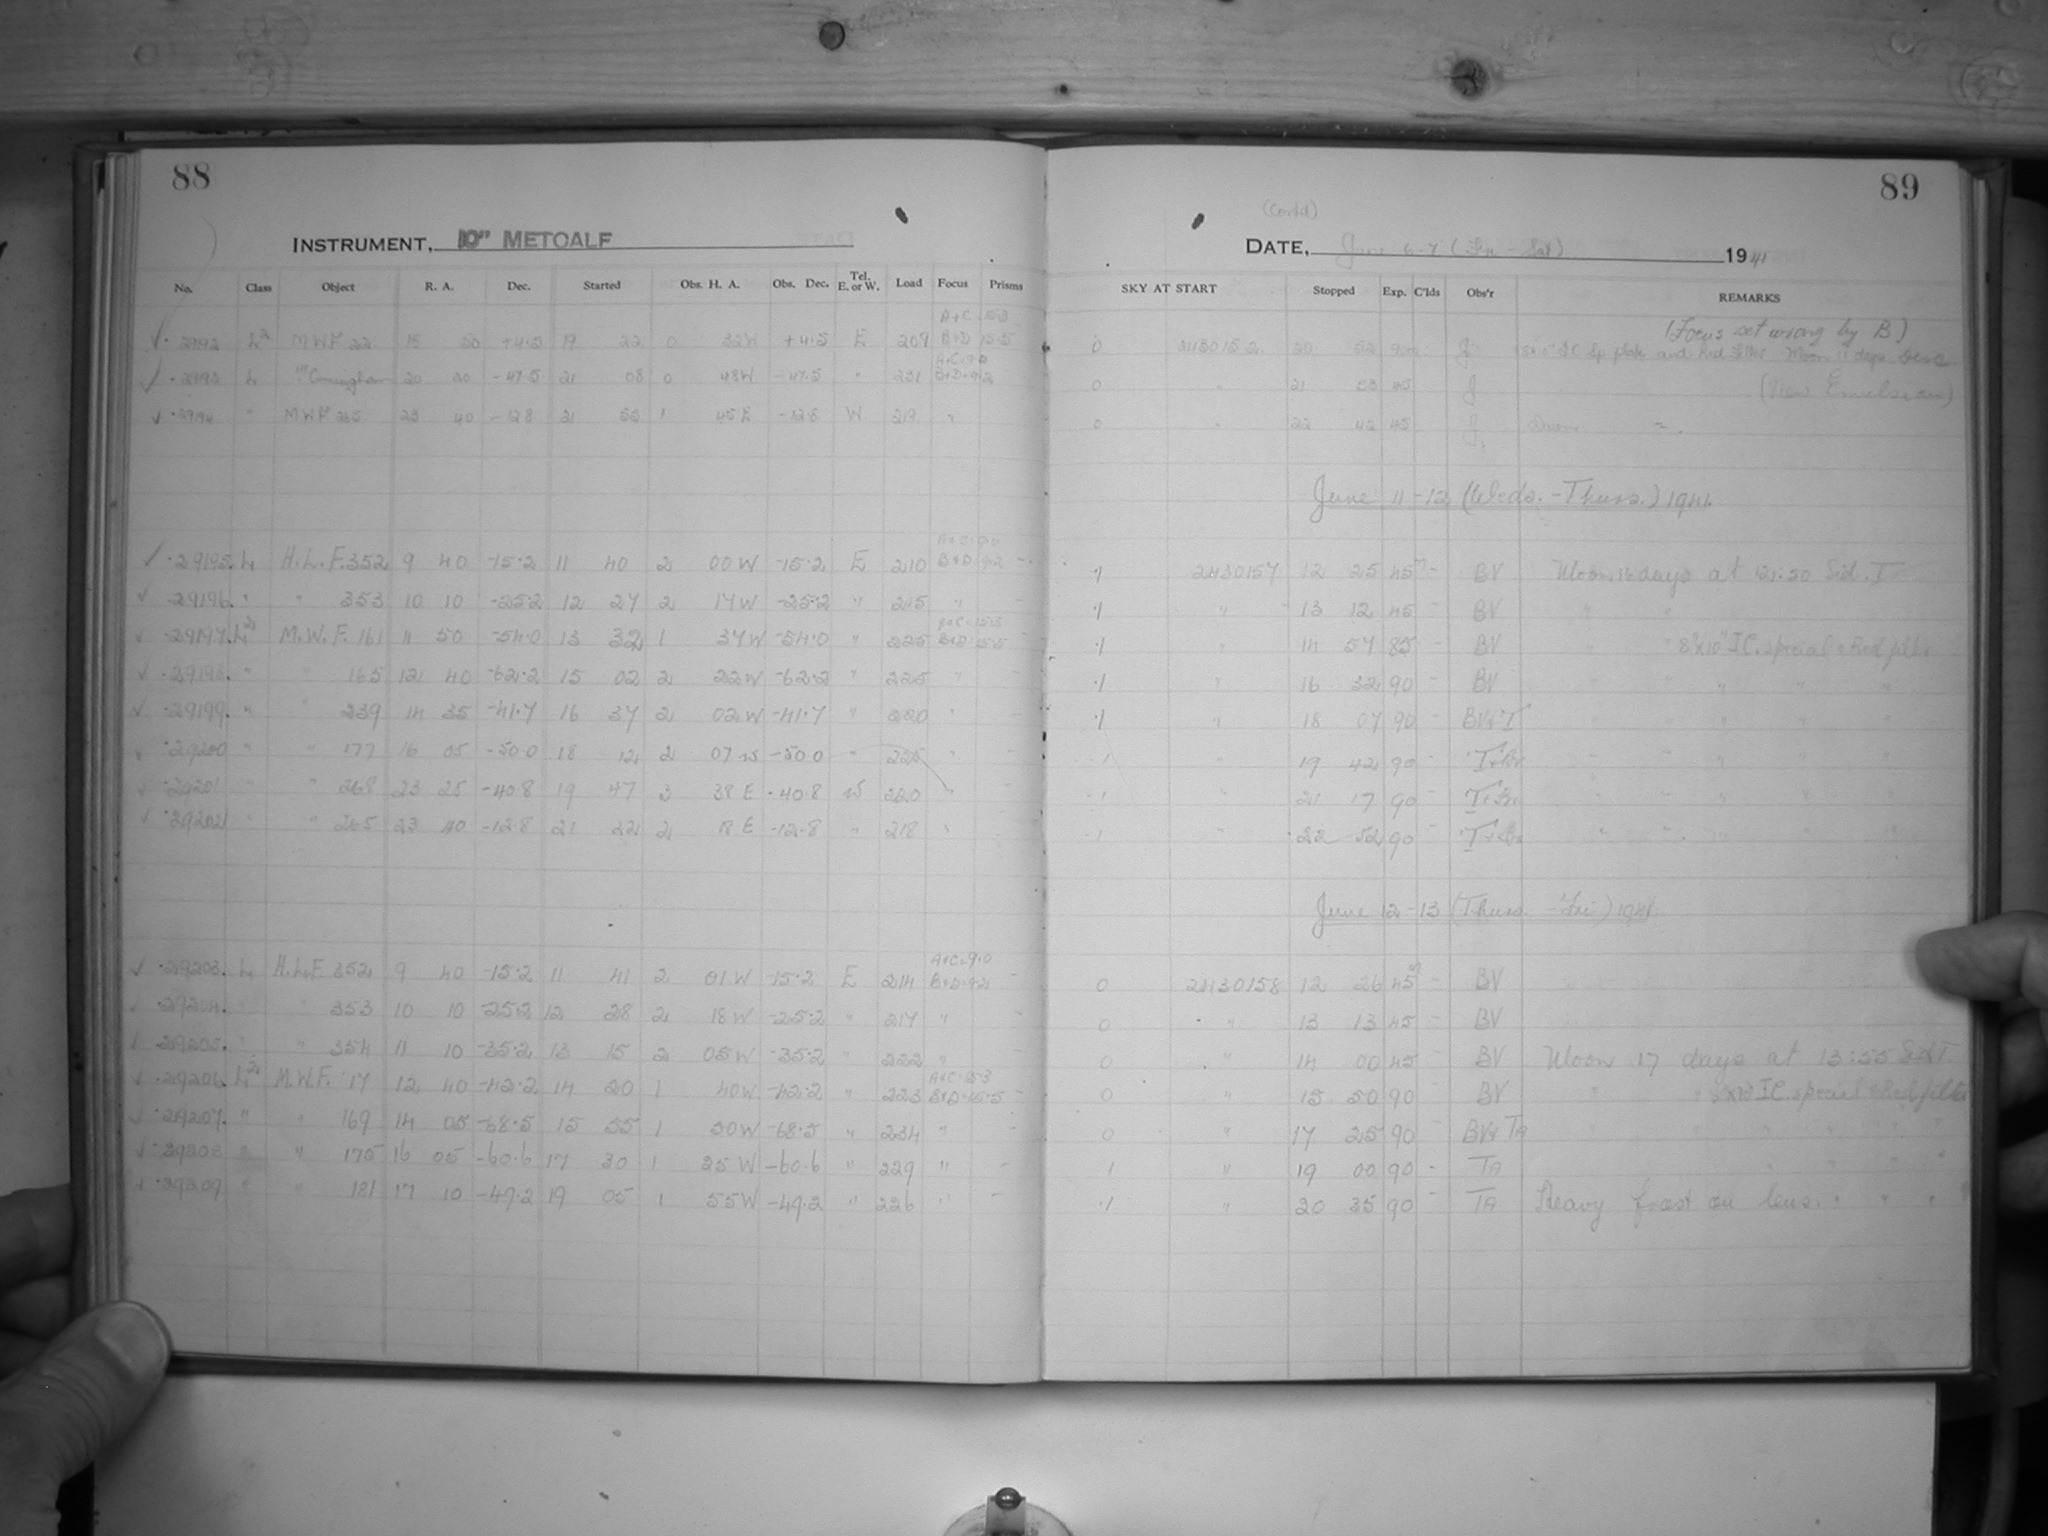 88
INSTRUMENT, 10" METCALF
No. Class Object R. A. Dec. Started Obs. H. A. Obs. Dec. Tel. E. or W. Load Focus Prisms
A+C 15.3
29192 L2 M.W.F. 22 15 50 +4.5 19 22 0 32W +4.5 E 209 B+D 15.5
A+C 9.0
29193 L Cunningham 20 20 -47.5 21 08 0 48W -47.5 " 231 B+D 9.2
29194 " M.W.F. 265 23 40 -12.8 21 55 1 45E -12.8 W 219 "
A+C 9.0
29195. L H.L.F. 352 9 40 -15.2 11 40 2 00W -15.2 E 210 B+D 9.2 -
29196. " " 353 10 10 -25.2 12 27 2 17W -25.2 " 215 "
A+C 15.3
29197. L2 M.W.F. 161 11 50 -54.0 13 32 1 37W -54.0 " 225 B+D 15.5
29198. " " 165 12 40 -62.2 15 02 2 22W -62.2 " 225 "
29199. " " 239 14 35 -41.7 16 37 2 02W -41.7 " 220 "
29200 " " 177 16 05 -50.0 18 12 2 07W -50.0 " 225 "
29201 " " 268 23 25 -40.8 19 47 3 38E -40.8 W 220 "
29202 " " 265 23 40 -12.8 21 22 2 18E -12.8 " 218 "
A+C 9.0
29203. L H.L.F. 352 9 40 -15.2 11 41 2 01W -15.2 E 214 B+D 9.2 -
29204. " " 353 10 10 -25.2 12 28 2 18W -25.2 " 217 " -
29205. " " 354 11 10 -35.2 13 15 2 05W -35.2 " 222 " -
A+C 15.3
29206. L2 M.W.F. 17 12 40 -42.2 14 20 1 40W -42.2 " 223 B+D 15.5 -
29207. " " 169 14 05 -68.5 15 55 1 50W -68.5 " 234 "
29208 " " 175 16 05 -60.6 17 30 1 25W -60.6 " 229 " -
29209 " " 181 17 10 -49.2 19 05 1 55W -49.2 " 226 " -
89
(Cont'd)
DATE, June 6-7 (Fri - Sat) 1941
SKY AT START Stopped Exp. C'lds Obs'r REMARKS
(Focus set wrong by B)
0 2430152 20 52 90 J 8x10" IC Sp plate and Red filter Moon 11 days
0 " 21 53 45 J (New Emulsion)
0 " 22 42 45 J.
June 11-12 (Weds. - Thurs.) 1941.
.1 2430157 12 25 45m - BV Moon 16 days at 12:30 Sid. T.
.1 " 13 12 45 - BV " "
.1 " 14 57 85 - BV " " 8"x10" IC. special & Red filter
.1 " 16 32 90 - BV " " " " "
.1 " 18 07 90 - BV & T " " " " "
.1 " 19 42 90 - T+BV " " " " "
.1 " 21 17 90 - " " " " "
.1 " 22 52 90 - " " " " "
June 12-13 (Thurs. - Fri) 1941.
0 2430158 12 26 45m - BV
0 " 13 13 45 - BV
0 " 14 00 45 - BV Moon 17 days at 13:55 Sid T.
0 " 15 50 90 BV " " 8x10 IC. special & Red filter
0 " 17 25 90 - BV & TA " " " " "
1 " 19 00 90 - TA " " " "
.1 " 20 35 90 - TA Heavy frost on lens. " " "